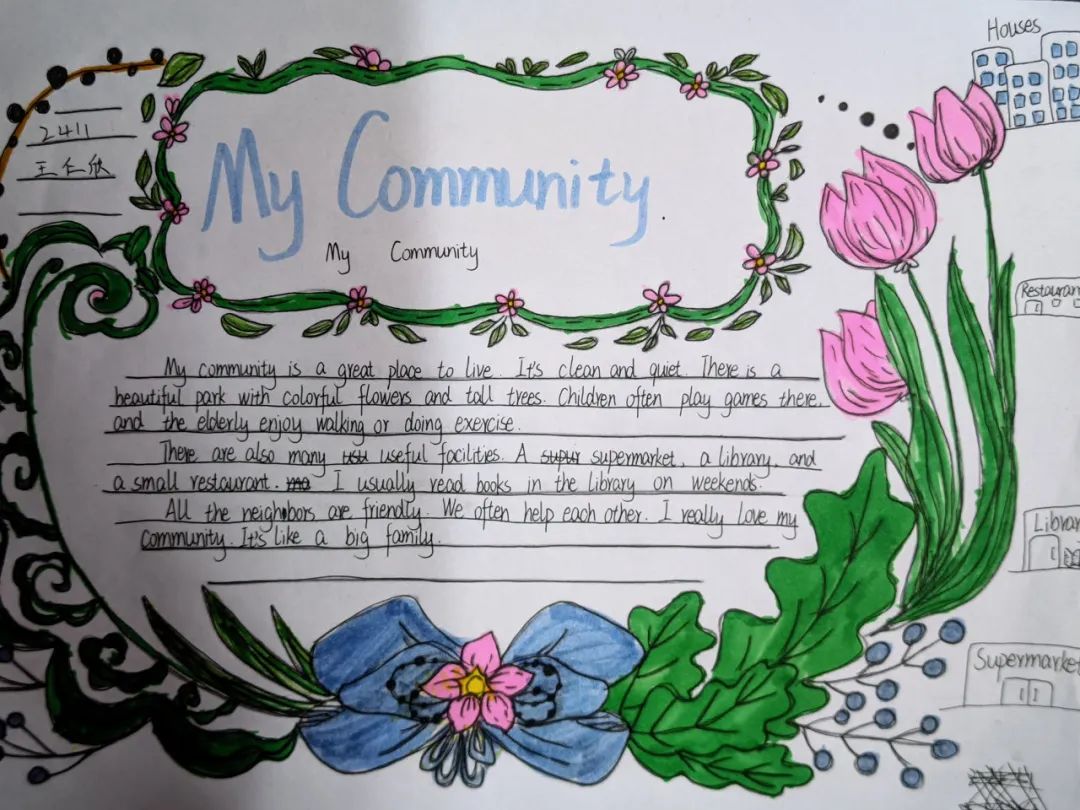 2411
王仁欣
My Community
My Community
My community is a great place to live. It's clean and quiet. There is a
beautiful park with colorful flowers and tall trees. Children often play games there,
and the elderly enjoy walking or doing exercise.
There are also many useful facilities. A supermarket, a library, and
a small restaurant. I usually read books in the library on weekends.
All the neighbors are friendly. We often help each other. I really love my
community. It's like a big family.
Houses
Restauran
Librar
Supermarket